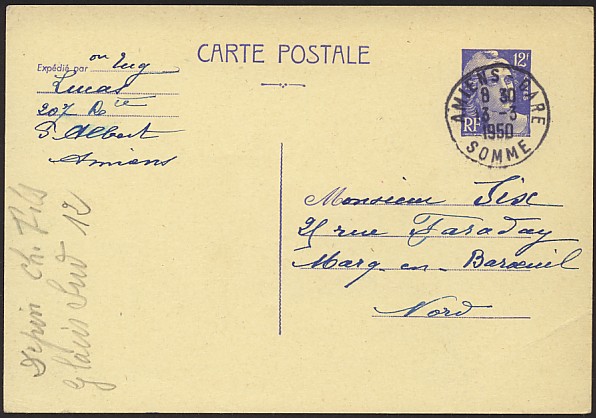 CARTE POSTALE
Expédié par on Eug
Lucas
207 Rte
St Albert
Amiens
12F
RF
AMIENS GARE
8 30
13 -3
1950
SOMME
Monsieur Six
25 rue Faraday
Marq-en-Baroeuil
Nord
Ch. Fils
Glacis Sud 12